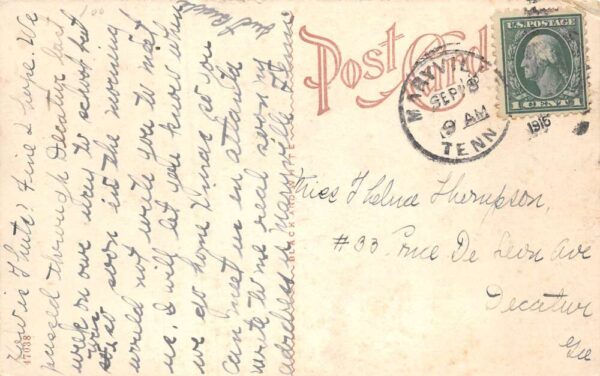 How is Thute? Fine I hope. We
passed through Decatur last
week on our way to school but
was so soon in the morning
would not write you to meet
us. I will let you know when
we go home Xmas so you
can meet us in Atlanta
write to me real soon my
address is Maryville, Tenn
100
Post Card
MARYVILLE
SEP
9 AM
TENN
1915
U.S. POSTAGE
1 CENT 1
Miss Thelma Thompson,
#33 Ponce De Leon Ave
Decatur
Ga
47038